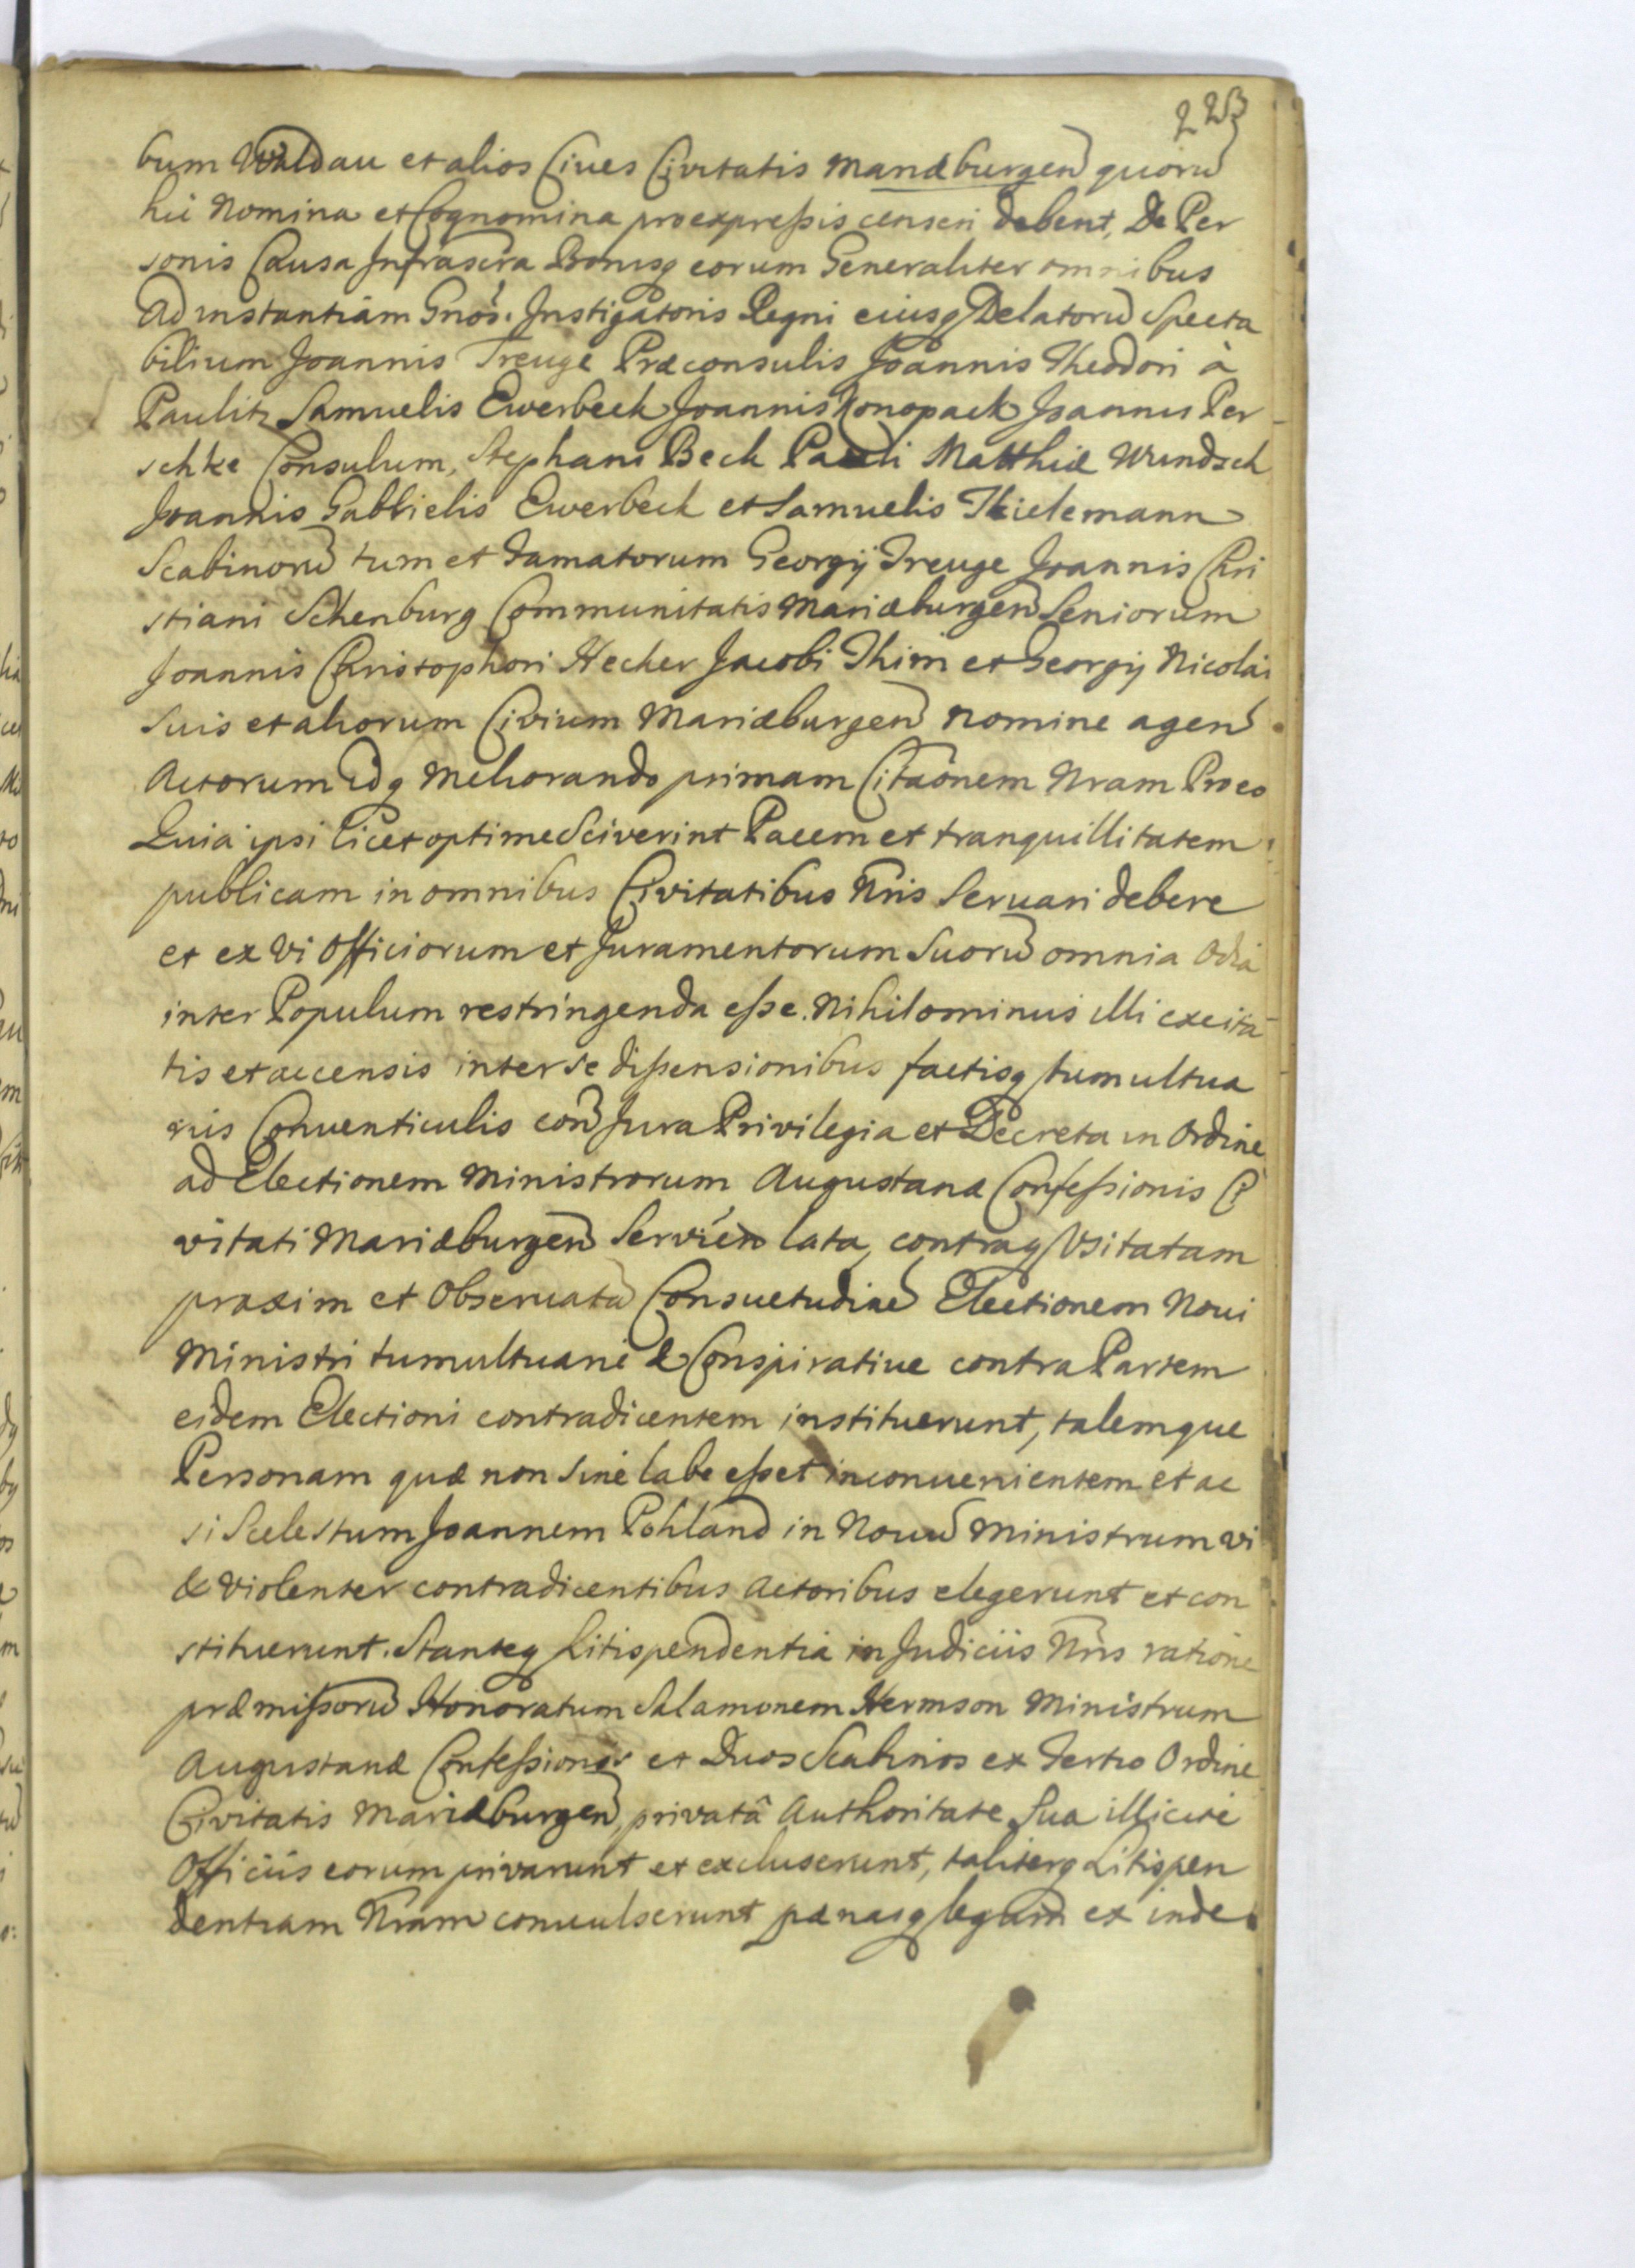 223
bum Waldau et alios Ciues Civitatis Mariæburgen quorũ
hic Nomina et Cognomina pro expreſsis censeri debent, De Per
sonis Causa Infrascra Bonisq eorum Generaliter omnibus
Ad instantiam Gnosi Instigatoris Regni eiusq Delatorũ Specta
bilium Joannis Treuge Præconsulis Joannis Theodori à
Paulitz Samuelis Ewerbeck Joannis Konopack Joannis Per
schke Consulum, Stephani Beck Pauli Matthiæ Wundsch
Joannis Gabrielis Ewerbeck et Samuelis Thielemann
Scabinorũ tum et Famatorum Georgij Treuge Joannis Chri
stiani Schenburg Communitatis Mariæburgen Seniorum
Joannis Christophori Hecher Jacobi Thim et Georgij Nicolai
Suis et aliorum Civium Mariæburgen Nomine agen
Actorum Idq Meliorando primam Citaõnem Nram Pro eo
Quia ipsi licet optime Sciverint Pacem et tranquillitatem
publicam in omnibus Civitatibus Nris Seruari debere
et ex vi Officiorum et Juramentorum Suorũ omnia Odia
inter Populum restringenda eſse. Nihilominus illi excita
tis et accensis inter se diſsensionibus factisq tumultua
riis Conuenticulis con Jura Privilegia et Decreta in Ordine
ad Electionem Ministrorum Augustanæ Confeſsionis Ci
vitati Mariæburgen Servien lata, contraq Usitatam
praxim et Obseruatã Consuetudinẽ Electionem Noui
Ministri tumultuariè & Conspiratiue contra Partem
eidem Electioni contradicentem instituerunt, talemque
Personam quæ non sine labe eſset inconuenientem et ac
si Scelestum Joannem Pohland in Nouũ Ministrum vi
& violenter contradicentibus Actoribus elegerunt et con
stituerunt. Stanteq Litispendentia in Judiciis Nris ratione
præmiſsorũ Honoratum Salamonem Hermson Ministrum
Augustanæ Confeſsionis et Duos Scabinos ex Tertio Ordine
Civitatis Mariæburgen, privatâ Authoritate Sua illicite
Officiis eorum privarunt et excluserunt, taliterq Litispen
dentiam Nram conuulserunt pænasq legum ex inde